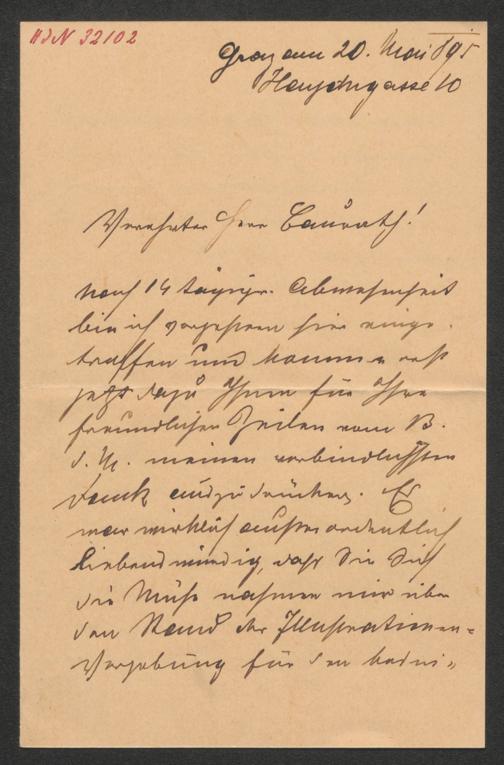 HJN 32102
Graz am 20. Mai 895
Haydngasse 10
Verehrter Herr Baurath!
Nach 14 tägiger Abwesenheit
bin ich vorgestern hier einge-
troffen und komme erst
jetzt dazu Ihnen für Ihre
freundlichen Zeilen vom 13.
d. M. meinen verbindlichsten
Dank auszudrücken. Es
war wirklich außerordentlich
liebenswürdig, daß Sie Sich
die Mühe nahmen mir über
den Stand der Illustrationen-
Vergebung für den